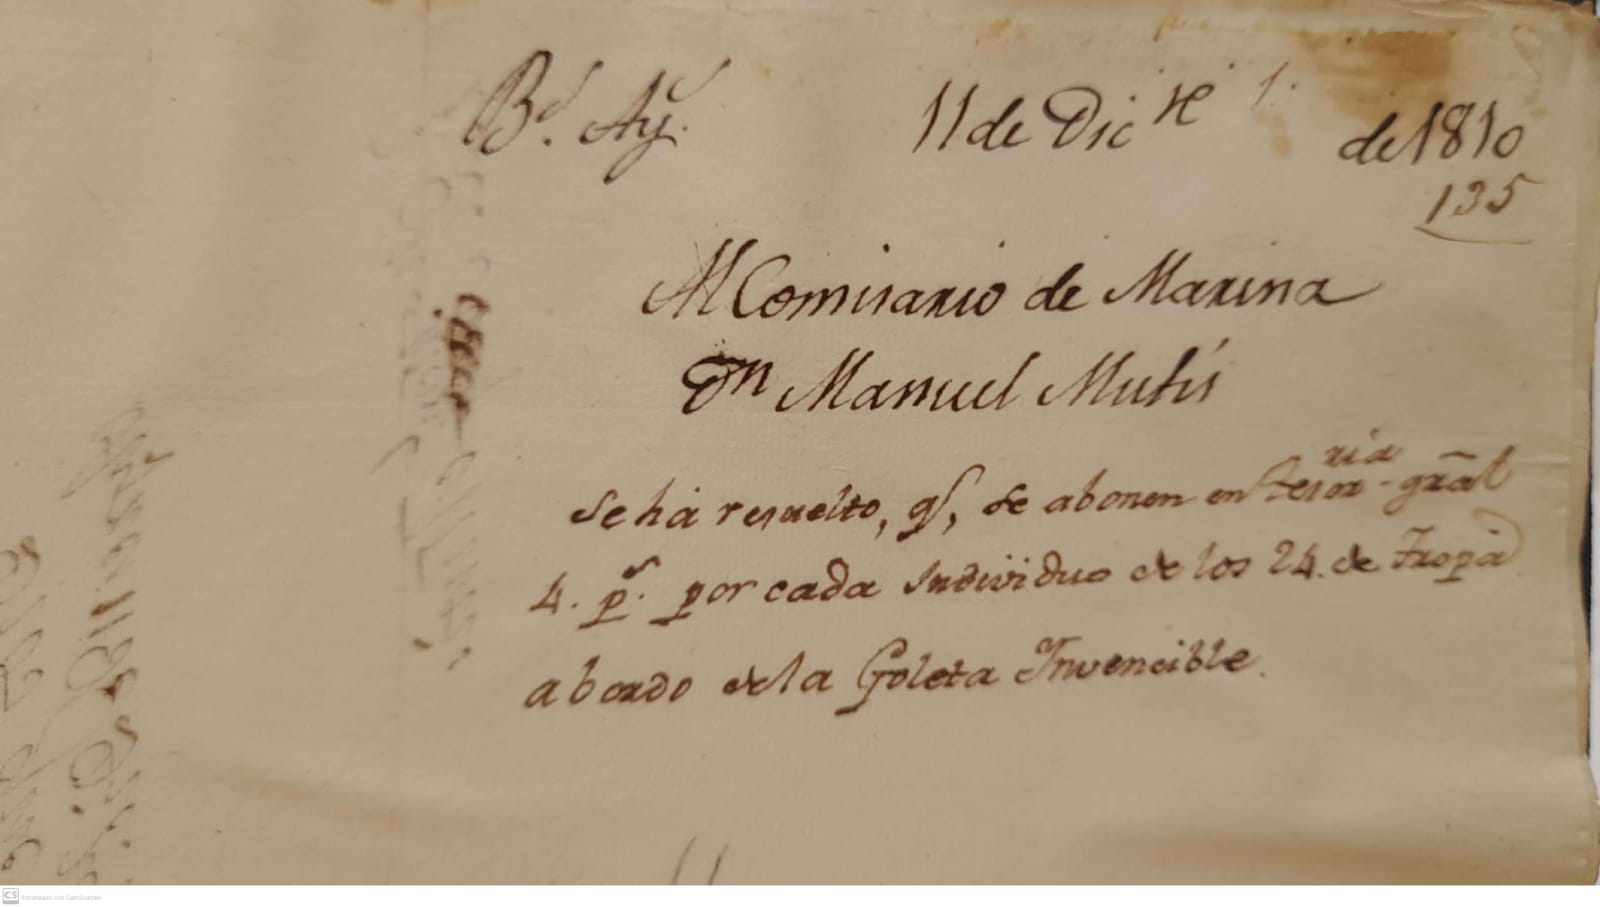 B.s Ay.s 11 de Dic.re de 1810
135
Al Comisario de Marina
Dn Manuel Mutis
Se há resuelto, qe, se abonen en Tesorria gral
4. p.s por cada Individuo de los 24. de Tropa
abordo de la Goleta Invencible.
CS Escaneado con CamScanner